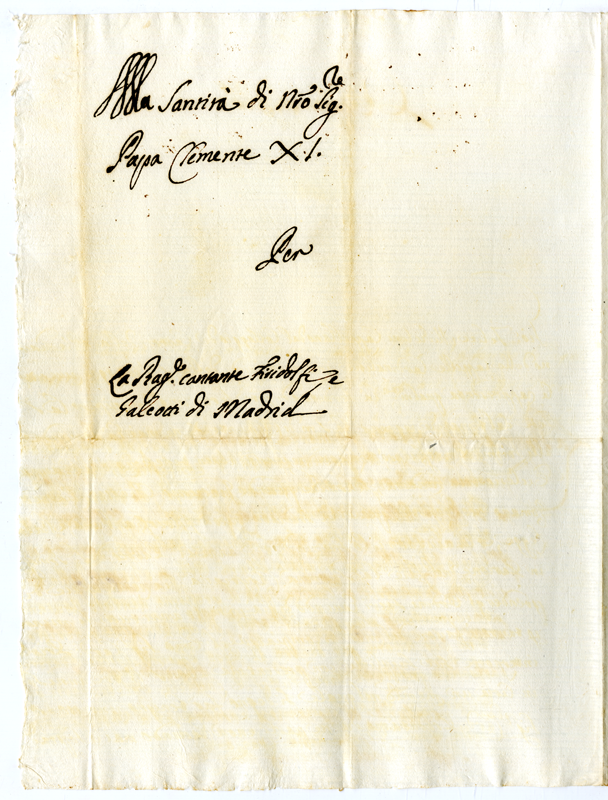 Alla Santità di Nro Sig.re
Papa Clemente X.I.
Per
La Rag.e cantante Fridolfi e
Galeotti di Madrid